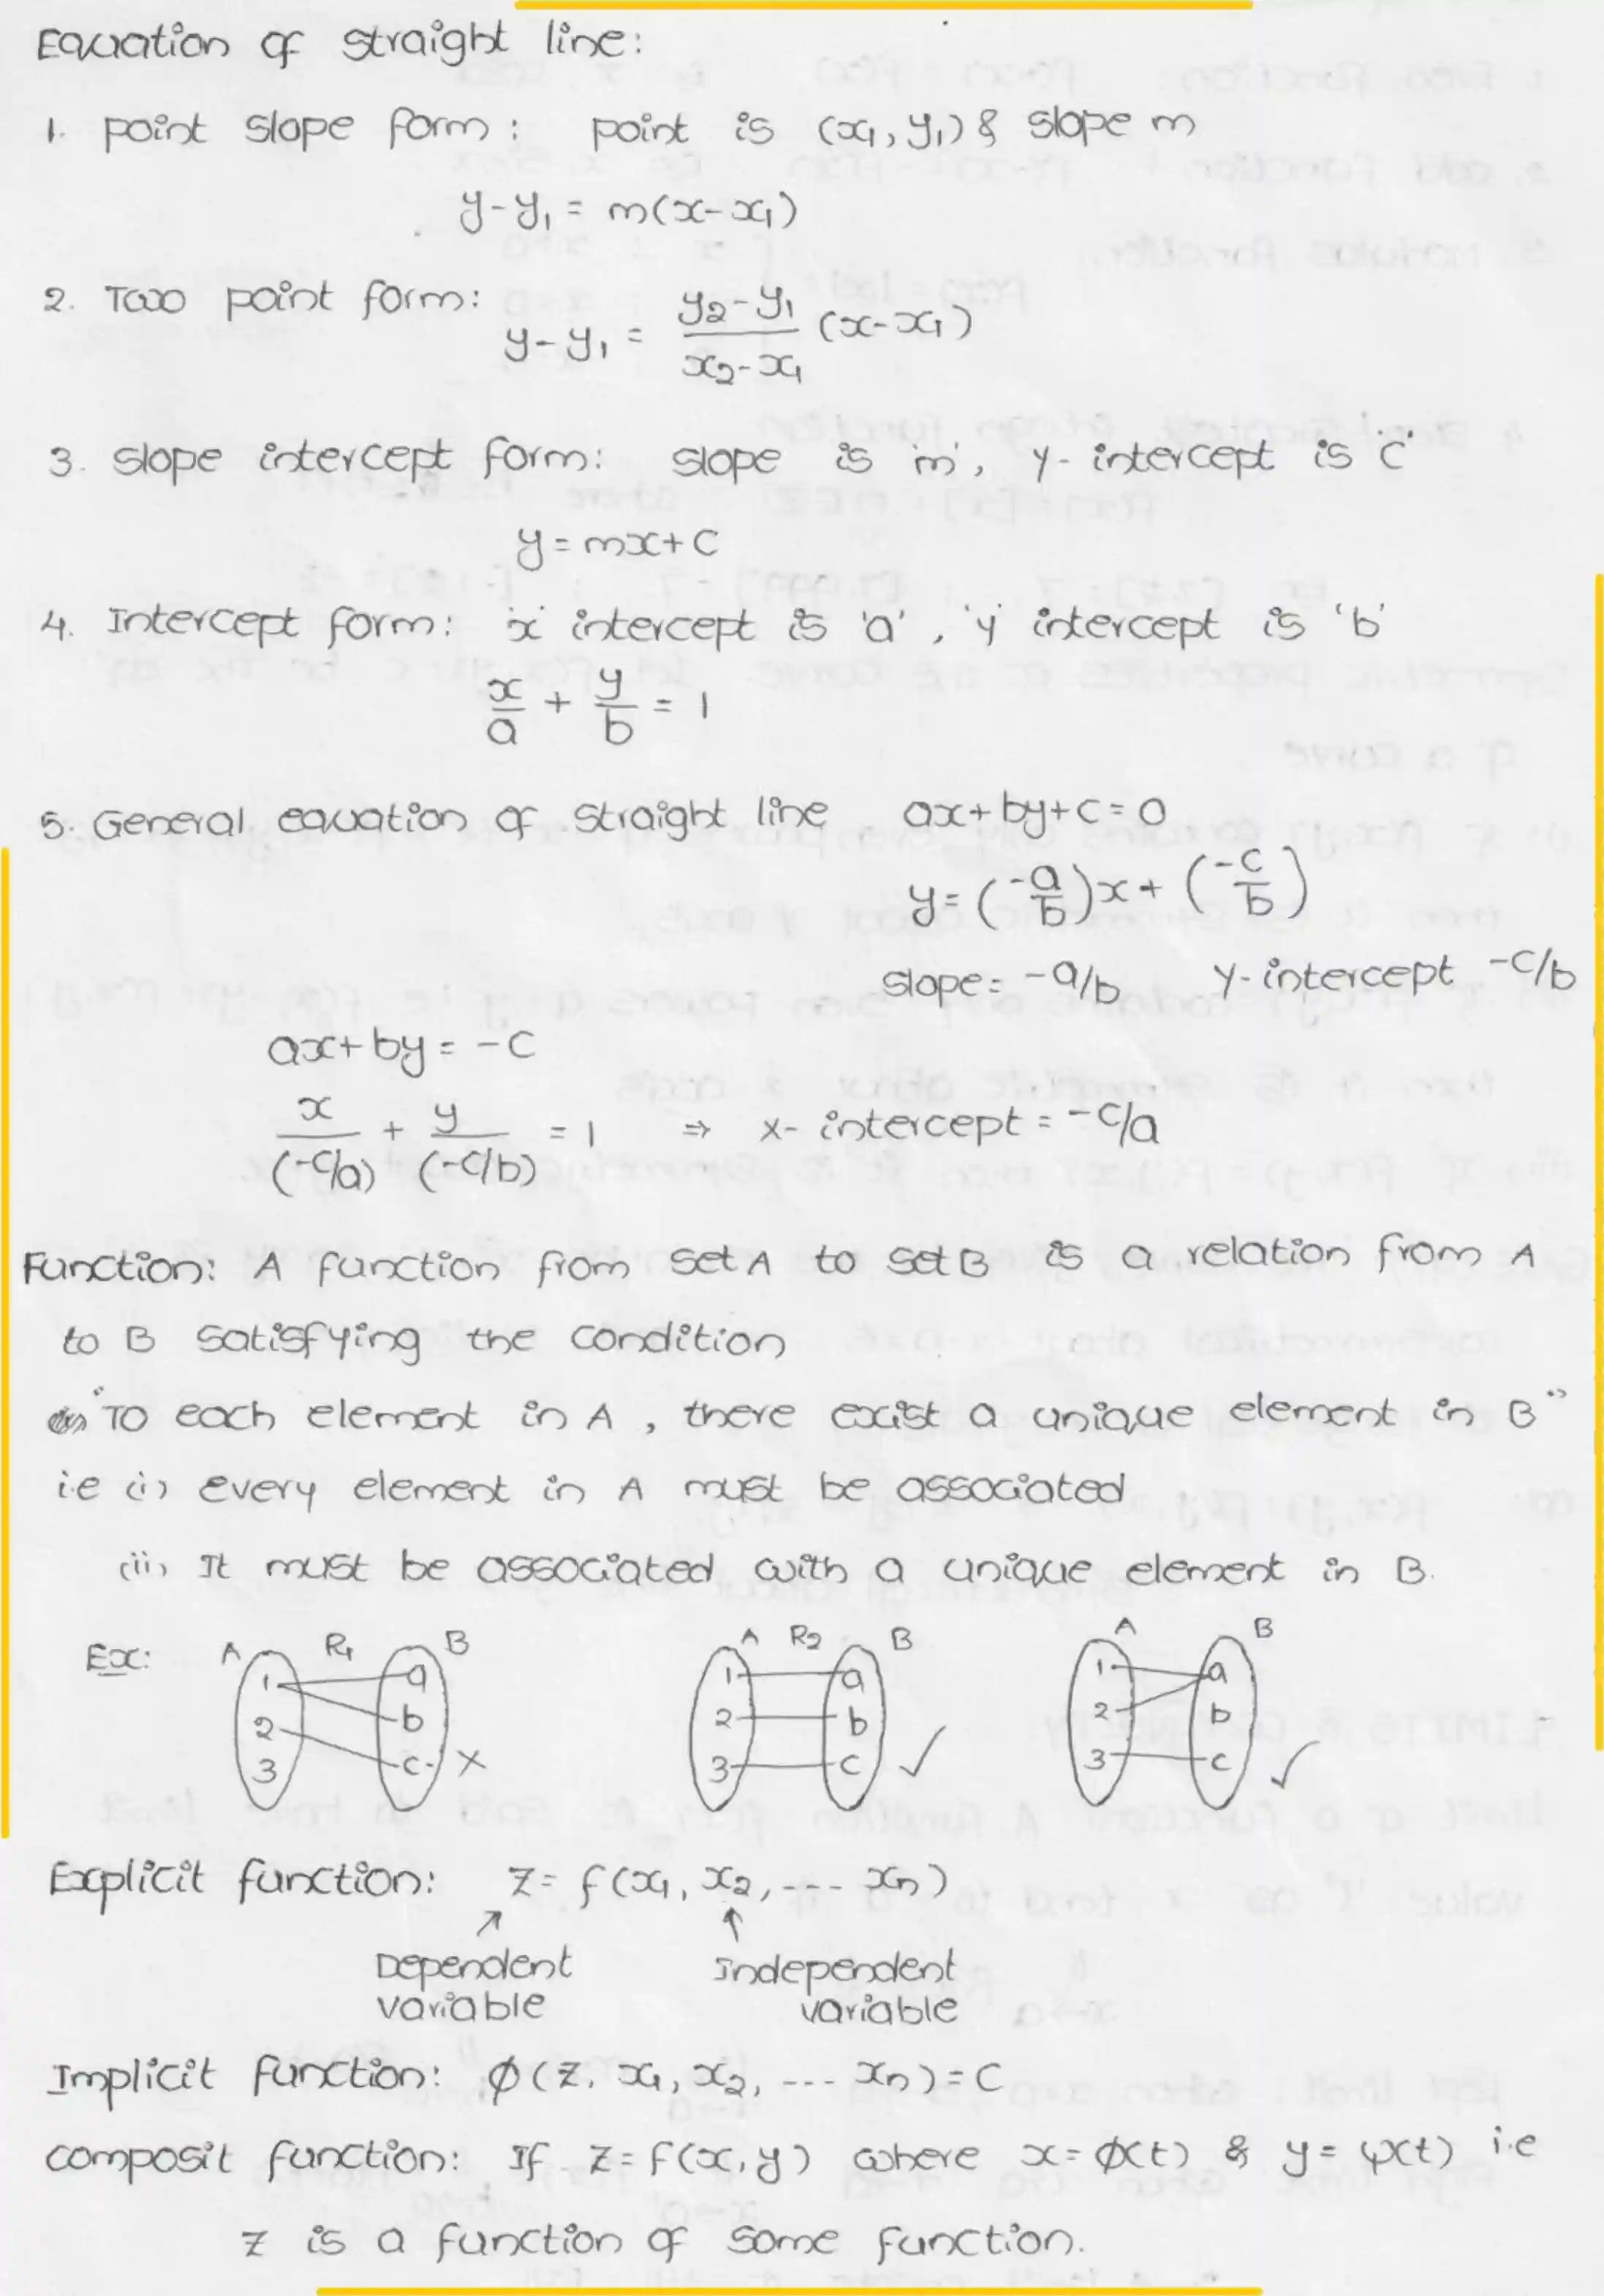 Equation of straight line:
1. point slope form: point is (x₁, y₁) & slope m
y-y₁ = m(x-x₁)
2. Two point form:
y-y₁ = \frac{y₂-y₁}{x₂-x₁} (x-x₁)
3. slope intercept form: slope is 'm', y-intercept is 'c'
y = mx+c
4. Intercept form: 'x' intercept is 'a', 'y' intercept is 'b'
\frac{x}{a} + \frac{y}{b} = 1
5. General equation of straight line ax+by+c=0
y = (-\frac{a}{b})x + (-\frac{c}{b})
slope = -a/b y-intercept -c/b
ax+by = -c
\frac{x}{(-c/a)} + \frac{y}{(-c/b)} = 1 ⇒ x-intercept = -c/a
Function: A function from set A to set B is a relation from A
to B satisfying the condition
"To each element in A, there exist a unique element in B"
i.e (i) every element in A must be associated
(ii) It must be associated with a unique element in B.
Ex: A R₁ B A R₂ B A B
1 a 1 a 1 a
2 b 2 b 2 b
3 c × 3 c ✓ 3 c ✓
Explicit function: z = f(x₁, x₂, --- xₙ)
↗ ↑
Dependent Independent
variable variable
Implicit function: φ(z, x₁, x₂, --- xₙ) = c
composit function: If z = f(x,y) where x = φ(t) & y = ψ(t) i.e
z is a function of some function.